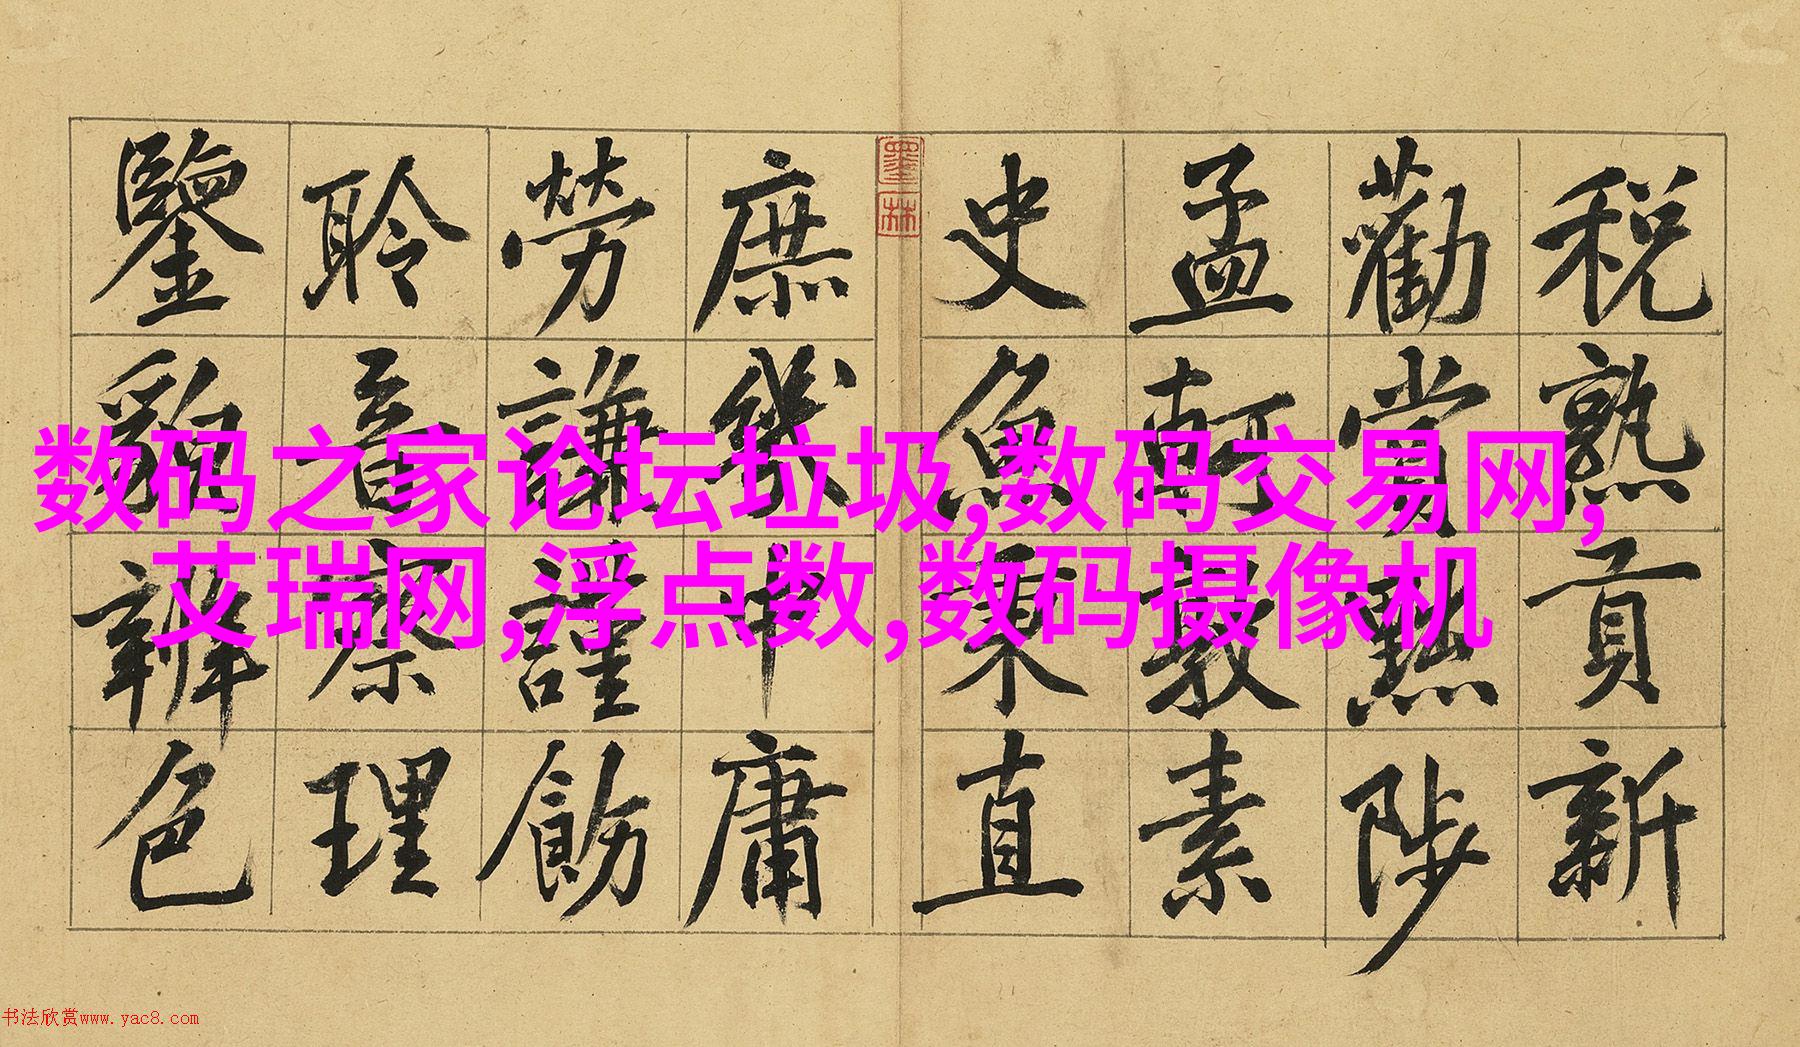 税熟貢新
勸賞黜陟
孟軻敦素
史魚秉直
墨林
庶幾中庸
勞謙謹飭
聆音察理
鑒貌辨色
数码之家论坛垃圾,数码交易网,
艾瑞网,浮点数,数码摄像机
书法欣赏www.yac8.com